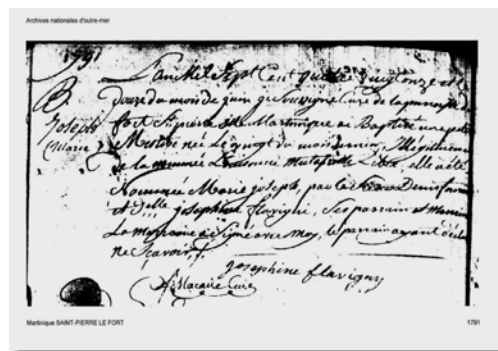 Archives nationales d'outre-mer
1791
B.
Joseph
(Marie)
L'an Mil Sept Cent quatre vingt onze et le
douze du mois de juin je soussigné Curé de la paroisse du
fort St pierre isle Martinique ai Baptisé une petite
Mestive née le vingt du mois dernier, illégitime
de la nommée mulatresse Libre, elle a été
Nommée Marie joseph, par le Sieur Denis
et Dlle josephine flavigny, Ses parrain et Marraine
La marraine a Signé avec moy, le parrain ayant déclaré
ne Scavoir.
josephine flavigny
f. Macaire Curé
Martinique SAINT-PIERRE LE FORT
1791